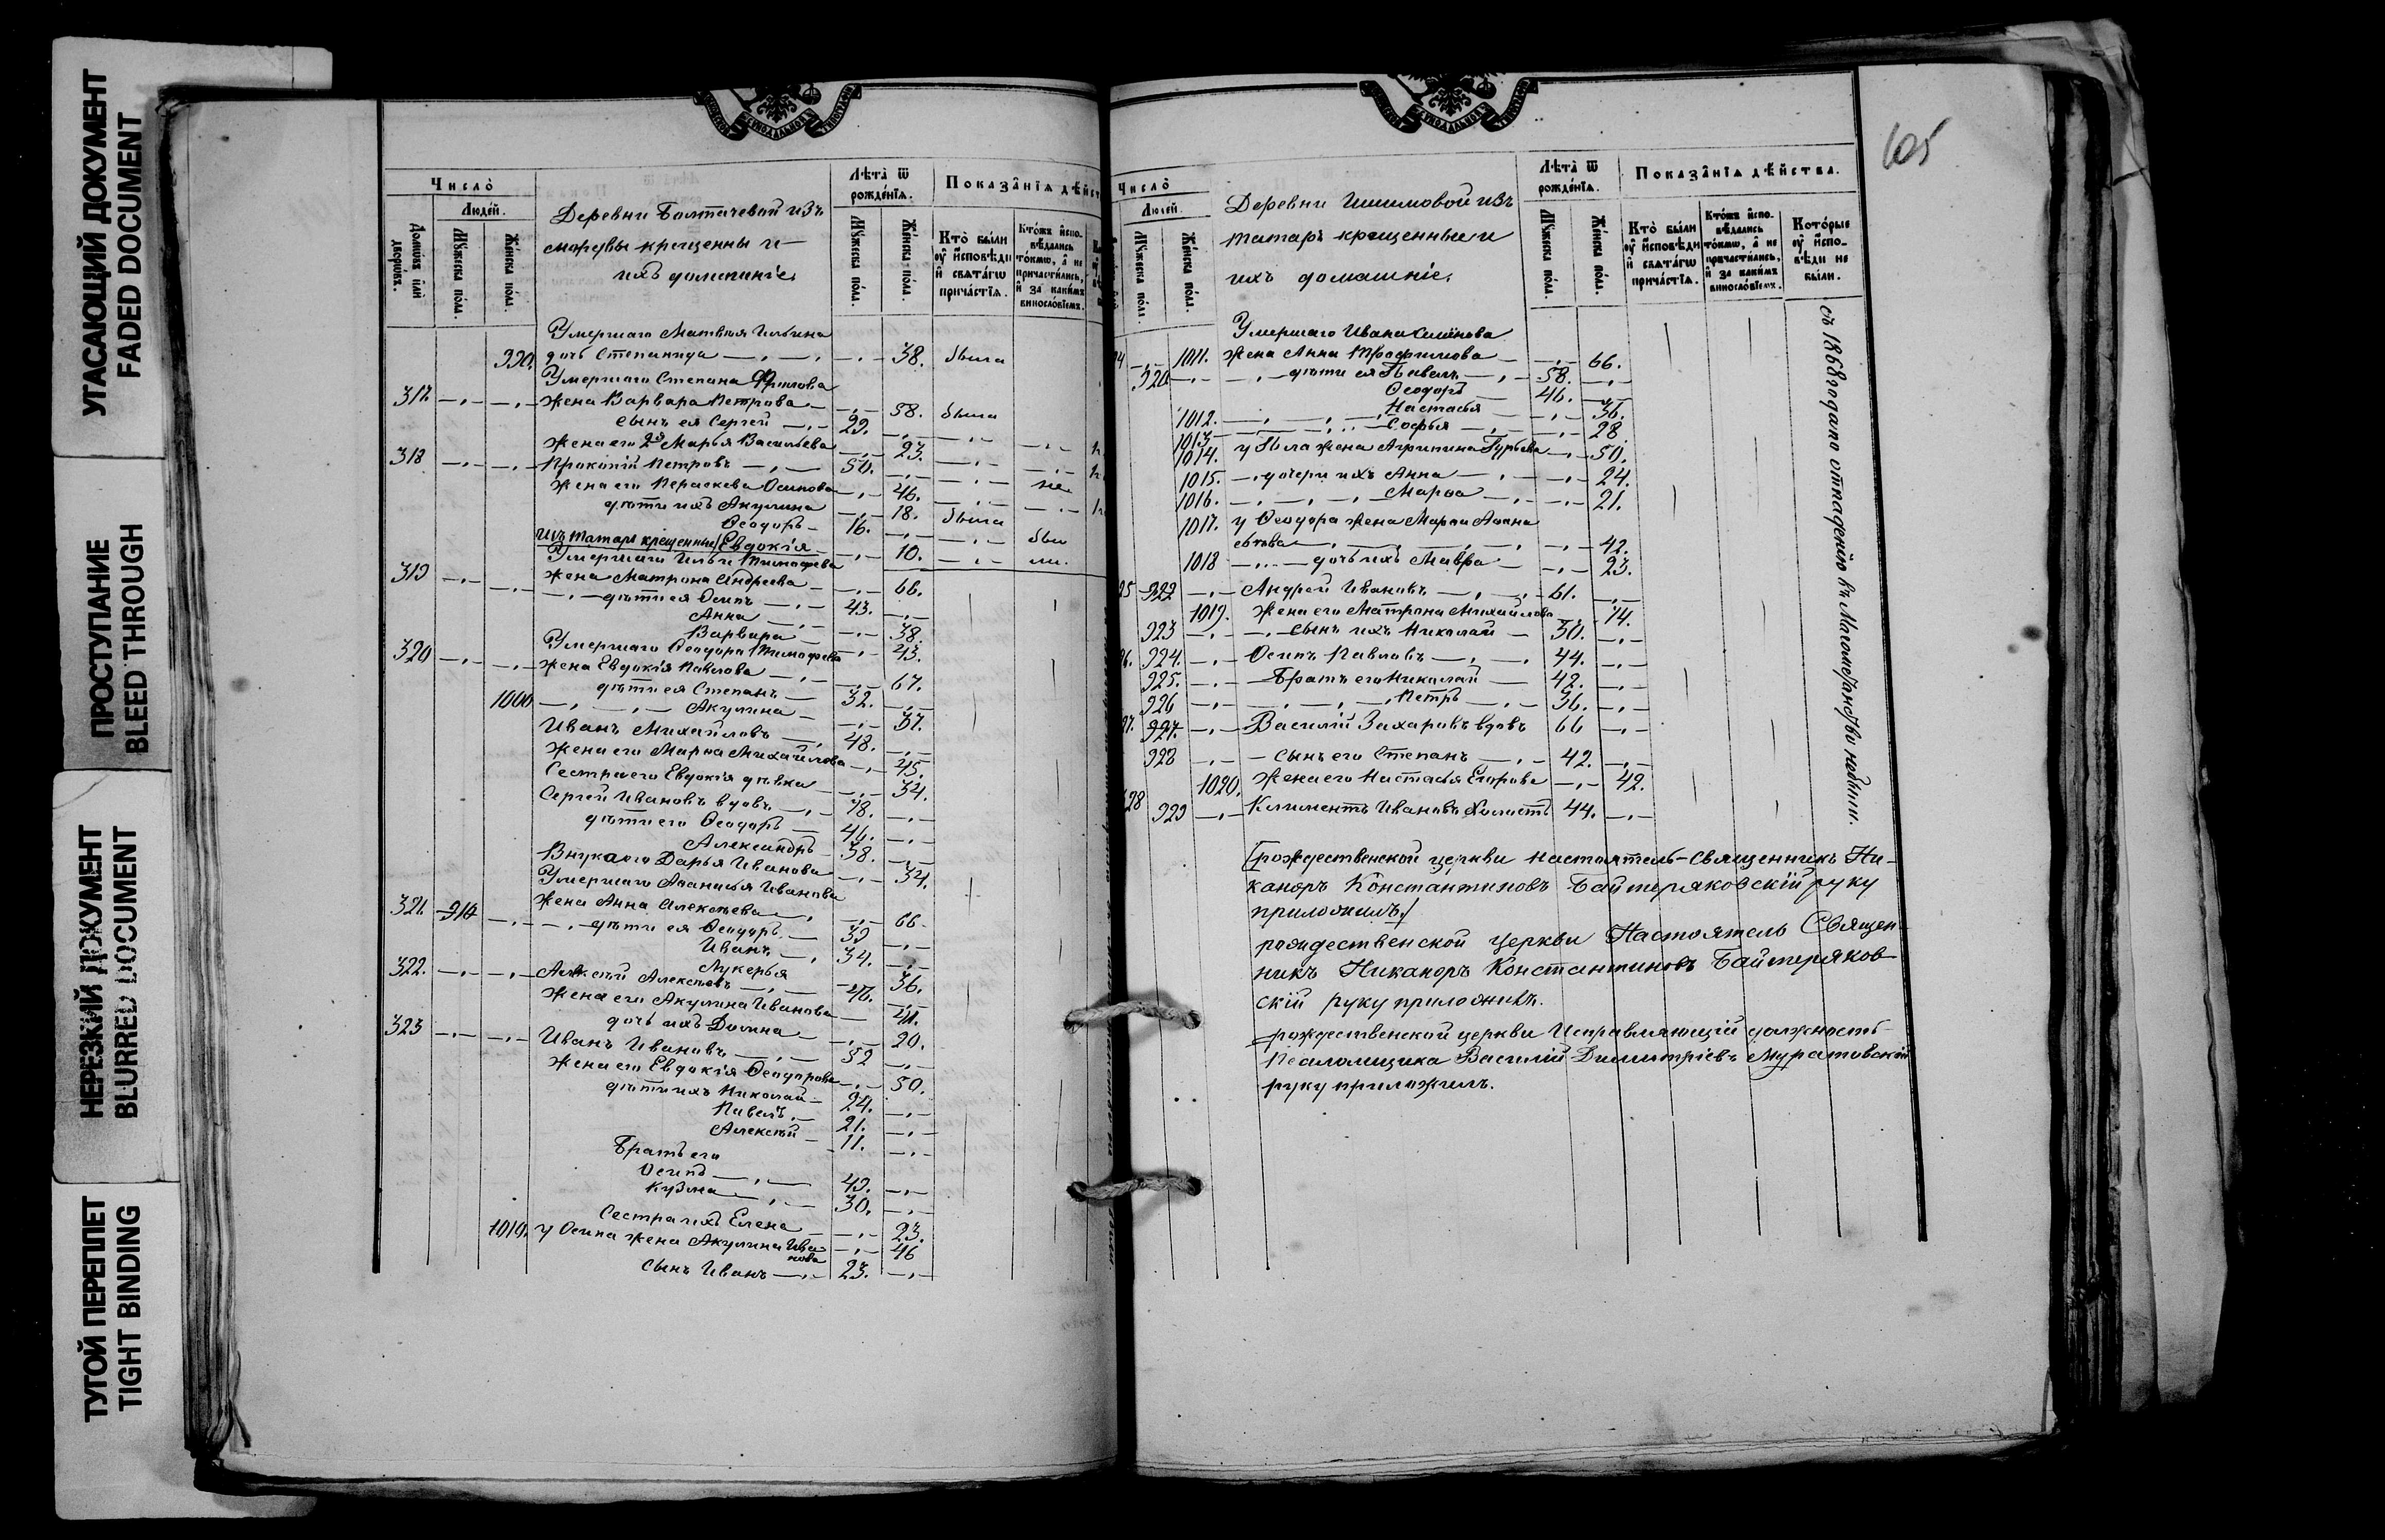 УГАСАЮЩИЙ ДОКУМЕНТ
FADED DOCUMENT
ПРОСТУПАНИЕ
BLEED THROUGH
НЕРЕЗКИЙ ДОКУМЕНТ
BLURRED DOCUMENT
ТУГОЙ ПЕРЕПЛЕТ
TIGHT BINDING
Число̀
Людей.
Домѡвъ или дворѡвъ.
Мꙋжеска полъ.
Женска полъ.
Деревни Болтачевой изъ
мордвы крещенны и
ихъ домашніе
Лѣта̀ ѿ рожденїѧ.
Мꙋжеска полъ.
Женска полъ.
Показанїѧ дѣйст
Кто̀ были оу исповѣди и свѧтагѡ причастїѧ.
Ктожъ испо-вѣдались токмѡ, а не причастились, и за какимъ винословїемъ.
Умершаго Матвѣя Ильина
990. дочь Степанида 38. была
Умершаго Степана
317. жена Варвара Петрова 58. была
сынъ ея Сергей 29.
жена его 2я Марья Васильева 23.
318 Прокопій Петровъ 50.
жена его Параскева Осипова 46. не
дѣти ихъ Акулина 18. была
Ѳеодоръ 16.
Изъ татаръ крещенные Евдокія 10.
Умершаго Ильи Тимофеева
319 жена Матрона Андреева 66.
дѣти ея Осипъ 43.
Анна 38.
Варвара 43.
Умершаго Ѳеодора Тимофеева
320 жена Евдокія Павлова 67.
дѣти ея Степанъ 32.
1000 Акулина 37.
Иванъ Михайловъ 48.
жена его Марѳа Михайлова 45.
Сестра его Евдокія дѣвка 34.
Сергей Ивановъ вдовъ 78.
дѣти его Ѳеодоръ 46.
Александръ 38.
Внука его Дарья Иванова 34.
Умершаго Аѳанасья Иванова
321. 910 жена Анна Алексѣева 66.
дѣти ея Ѳеодоръ 39
Иванъ 34.
Лукерья 36.
322. Алексѣй Алексѣевъ 46.
жена его Акулина Иванова 41.
дочь ихъ Домна 20.
323 Иванъ Ивановъ 52
жена его Евдокія Ѳеодорова 50.
дѣти ихъ Николай 24.
Павелъ 21.
Алексѣй 11.
Братъ его
Осипъ 49.
Кузма 30.
Сестра ихъ Елена 23.
1010. у Осипа жена Акулина Ива-
нова 46
сынъ Иванъ 23.
605
Число̀
Людей.
Мꙋжеска полъ.
Женска полъ.
Деревни Ишимовой изъ
татаръ крещенные и
ихъ домашніе.
Лѣта̀ ѿ рожденїѧ.
Мꙋжеска полъ.
Женска полъ.
Показанїѧ дѣйства.
Кто̀ были оу исповѣди и свѧтагѡ причастїѧ.
Ктожъ испо-вѣдались токмѡ, а не причастились, и за какимъ винословїемъ.
Которые оу испо-вѣди не были.
Умершаго Ивана Семёнова
1011. жена Анна Трофимова 66.
920 дѣти ея Павелъ 58.
Ѳеодоръ 46.
1012. Настасья 36.
1013 Софья 28
1014. у Павла жена Агрипина Гурьева 50.
1015. дочери ихъ Анна 24.
1016. Марѳа 21.
1017. у Ѳеодора жена Марѳа
42.
1018 дочь ихъ Мавра 23.
25 922 Андрей Ивановъ 61.
1019. жена его Матрона Михайлова 74.
923 сынъ ихъ Николай 30.
26. 924. Осипъ Павловъ 44.
925. Братъ его Николай 42.
926 Петръ 36.
27. 927. Василій Захаровъ вдовъ 66
928 сынъ его Степанъ 42.
1020. жена его Настасья Егорова 42.
28 929 Климентъ Ивановъ Холостъ 44.
съ 1868 года по отпаденію въ Магометанство небыли.
[рождественской церкви настоятель-священникъ Ни-
каноръ Константиновъ Баймеряковскій руку
приложилъ]
рождественской церкви Настоятель Священ-
никъ Никаноръ Константиновъ Баймеряков-
скій руку приложилъ.
рождественской церкви Исправляющій должность
Псаломщика Василій Димитріевъ Муратовскій
руку приложилъ.